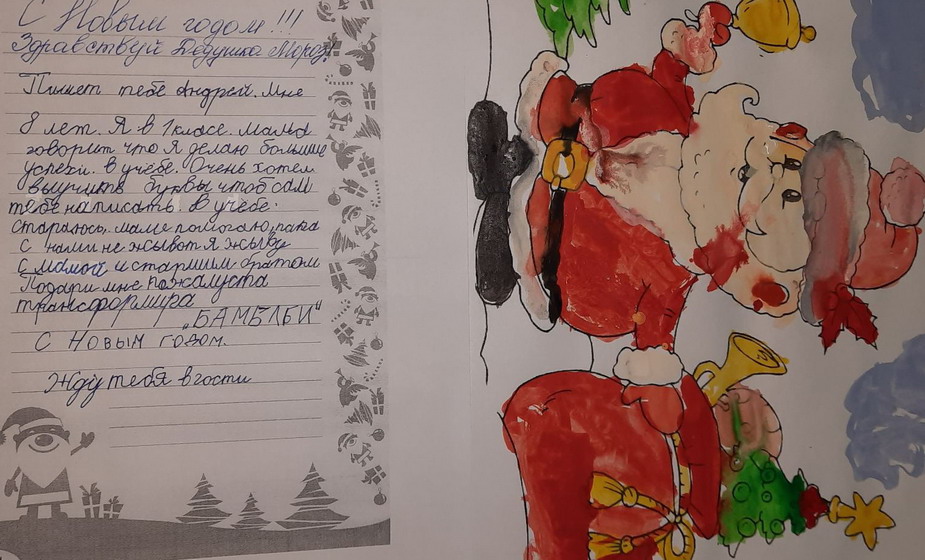 С Новым годом!!!
Здравствуй Дедушка Мороз!
Пишет тебе Андрей. Мне
8 лет. Я в 1 класе. Мама
говорит что я делаю большие
успехи. в учёбе. Очень хотел
выучить буквы чтоб сам
тебе написать. В учёбе
стараюсь, маме помогаю, папа
с нами не жывот я жыву
с мамой и старшим братом
Подари мне пожалуста
трансформира
"БАМБЛБИ"
С Новым годом.
Жду тебя в гости